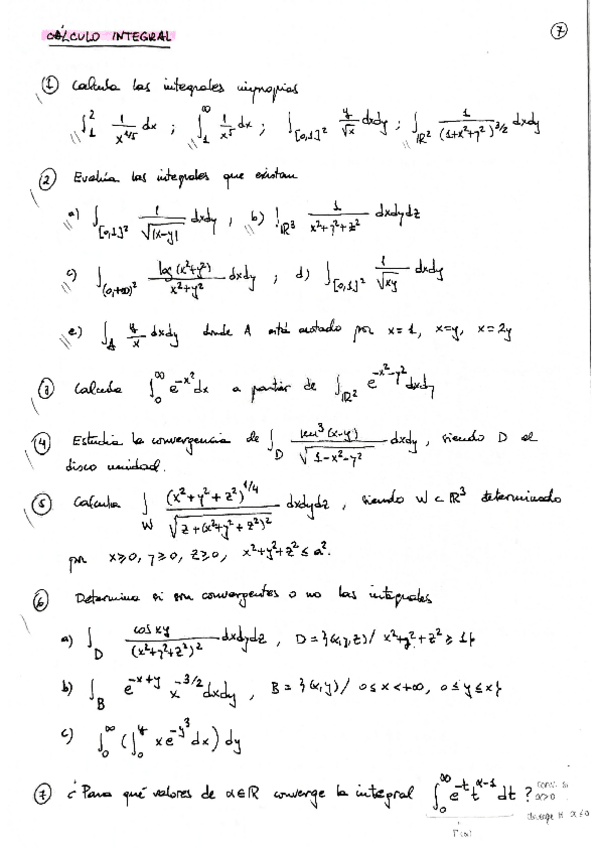 CÁLCULO INTEGRAL
7
① Calcula las integrales impropias
∫_1^2 1/x^{4/5} dx ; ∫_1^∞ 1/x^5 dx ; ∫_{[0,1]^2} y/√x dxdy ; ∫_{ℝ^2} 1/(1+x^2+y^2)^{3/2} dxdy
② Evalúa las integrales que existan
a) ∫_{[0,1]^2} 1/√|x-y| dxdy , b) ∫_{ℝ^3} 1/(x^2+y^2+z^2) dxdydz
c) ∫_{(0,+∞)^2} log(x^2+y^2)/(x^2+y^2) dxdy ; d) ∫_{[0,1]^2} 1/√xy dxdy
e) ∫_A y/x dxdy donde A está acotado por x=1, x=y, x=2y
③ Calcula ∫_0^∞ e^{-x^2} dx a partir de ∫_{ℝ^2} e^{-x^2-y^2} dxdy
④ Estudia la convergencia de ∫_D sen^3(x-y)/√(1-x^2-y^2) dxdy , siendo D el
disco unidad.
⑤ Calcula ∫_W (x^2+y^2+z^2)^{1/4}/√(z+(x^2+y^2+z^2)^2) dxdydz , siendo W ⊂ ℝ^3 determinado
por x≥0, y≥0, z≥0, x^2+y^2+z^2≤a^2.
⑥ Determina si son convergentes o no las integrales
a) ∫_D cos xy/(x^2+y^2+z^2)^2 dxdydz , D={(x,y,z)/ x^2+y^2+z^2≥1}
b) ∫_B e^{-x+y} x^{-3/2} dxdy , B={(x,y)/ 0≤x<+∞, 0≤y≤x}
c) ∫_0^∞ (∫_0^y x e^{-y^3} dx) dy
⑦ ¿Para qué valores de α∈ℝ converge la integral ∫_0^∞ e^{-t} t^{α-1} dt ? conv. si
α>0
diverge si α≤0
Γ(α)